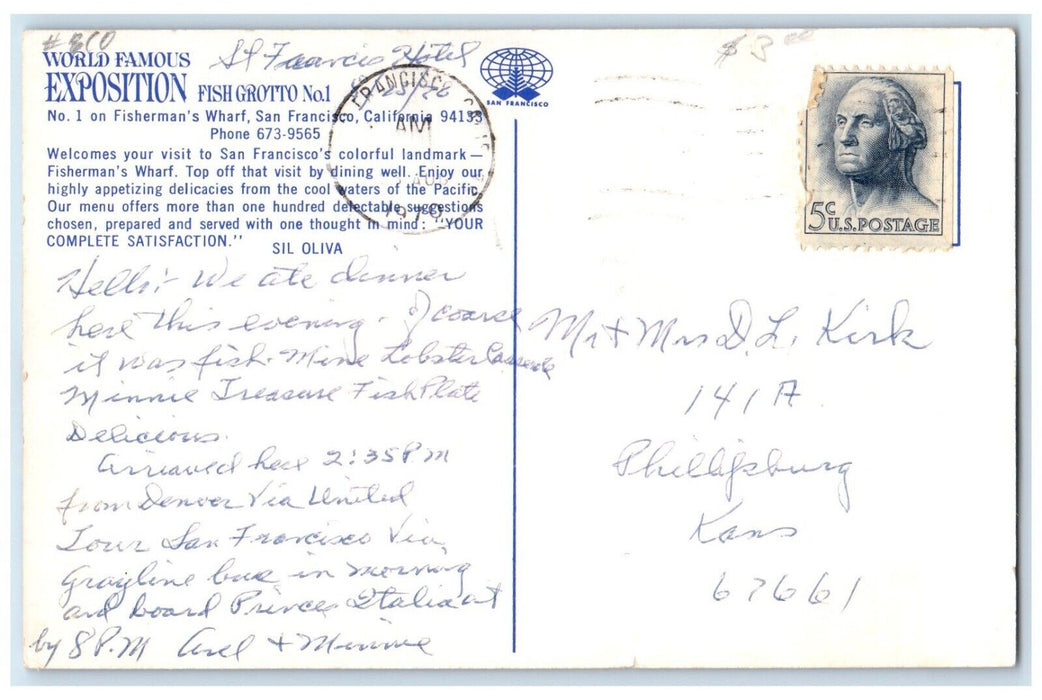 WORLD FAMOUS
EXPOSITION FISH GROTTO No.1
St Francis Hotel
SAN FRANCISCO
No. 1 on Fisherman's Wharf, San Francisco, California 94133
Phone 673-9565
Welcomes your visit to San Francisco's colorful landmark —
Fisherman's Wharf. Top off that visit by dining well. Enjoy our
highly appetizing delicacies from the cool waters of the Pacific.
Our menu offers more than one hundred delectable suggestions
chosen, prepared and served with one thought in mind: "YOUR
COMPLETE SATISFACTION."
SIL OLIVA
FRANCISCO
AM
1970
$3 00
5c
U.S. POSTAGE
Hello:- We ate dinner
here this evening. Of coarse
it was fish. Mine Lobster
Minnie Treasure Fish Plate
Delicious.
Arrieaved here 2:35 P.M
from Denver Via United
Tour San Francisco Via
Grayline bus in morning
and board Princes Italia at
by 8 P.M & Minnie
Mr + Mrs D. L. Kirk
141 A
Phillipsburg
Kans
67661